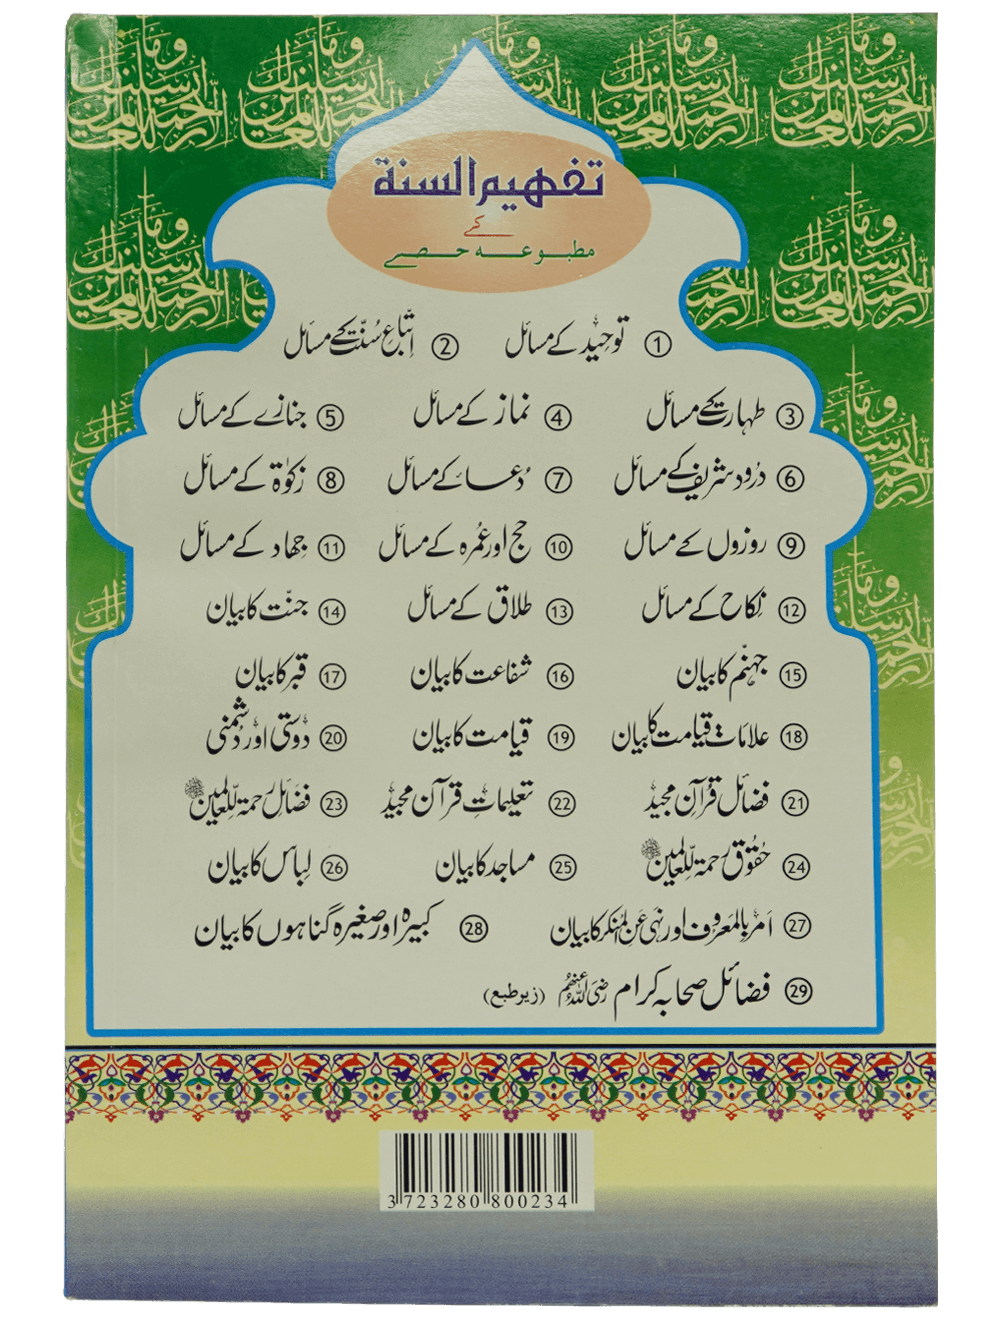 تفہیم السنۃ
کے
مطبوعہ حصے
① توحید کے مسائل ② اتباع سنت کے مسائل
③ طہارت کے مسائل ④ نماز کے مسائل ⑤ جنازے کے مسائل
⑥ درود شریف کے مسائل ⑦ دعا کے مسائل ⑧ زکوٰۃ کے مسائل
⑨ روزوں کے مسائل ⑩ حج اور عمرہ کے مسائل ⑪ جہاد کے مسائل
⑫ نکاح کے مسائل ⑬ طلاق کے مسائل ⑭ جنت کا بیان
⑮ جہنم کا بیان ⑯ شفاعت کا بیان ⑰ قبر کا بیان
⑱ علامات قیامت کا بیان ⑲ قیامت کا بیان ⑳ دوستی اور دشمنی
㉑ فضائل قرآن مجید ㉒ تعلیمات قرآن مجید ㉓ فضائل رحمۃ للعالمین ﷺ
㉔ حقوق رحمۃ للعالمین ﷺ ㉕ مساجد کا بیان ㉖ لباس کا بیان
㉗ امر بالمعروف اور نہی عن المنکر کا بیان ㉘ کبیرہ اور صغیرہ گناہوں کا بیان
㉙ فضائل صحابہ کرام رضی اللہ عنہم (زیر طبع)
3 723280 800234
وما ارسلنك الا رحمة للعالمين